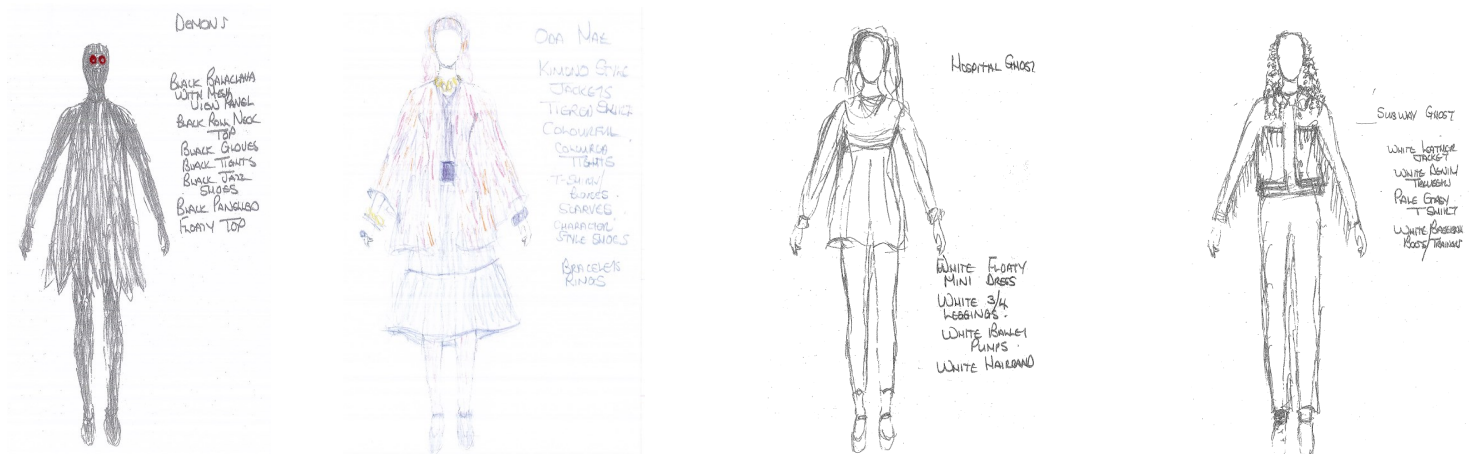 DEMONS
BLACK BALACLAVA
WITH MESH
VIEW PANEL
BLACK ROLL NECK
TOP
BLACK GLOVES
BLACK TIGHTS
BLACK JAZZ
SHOES
BLACK PANELLED
FLOATY TOP
ODA MAE
KIMONO STYLE
JACKETS
TIERED SKIRT
COLOURFUL
COLOURED
TIGHTS
T-SHIRT/
SCARVES
CHARACTER
STYLE SHOES
BRACELETS
RINGS
HOSPITAL GHOST
WHITE FLOATY
MINI DRESS
WHITE 3/4
LEGGINGS.
WHITE BALLET
PUMPS.
WHITE HAIRBAND
SUBWAY GHOST
WHITE LEATHER
JACKET
WHITE DENIM
TROUSERS
PALE GREY
T SHIRT
WHITE BASEBALL
BOOTS/TRAINERS